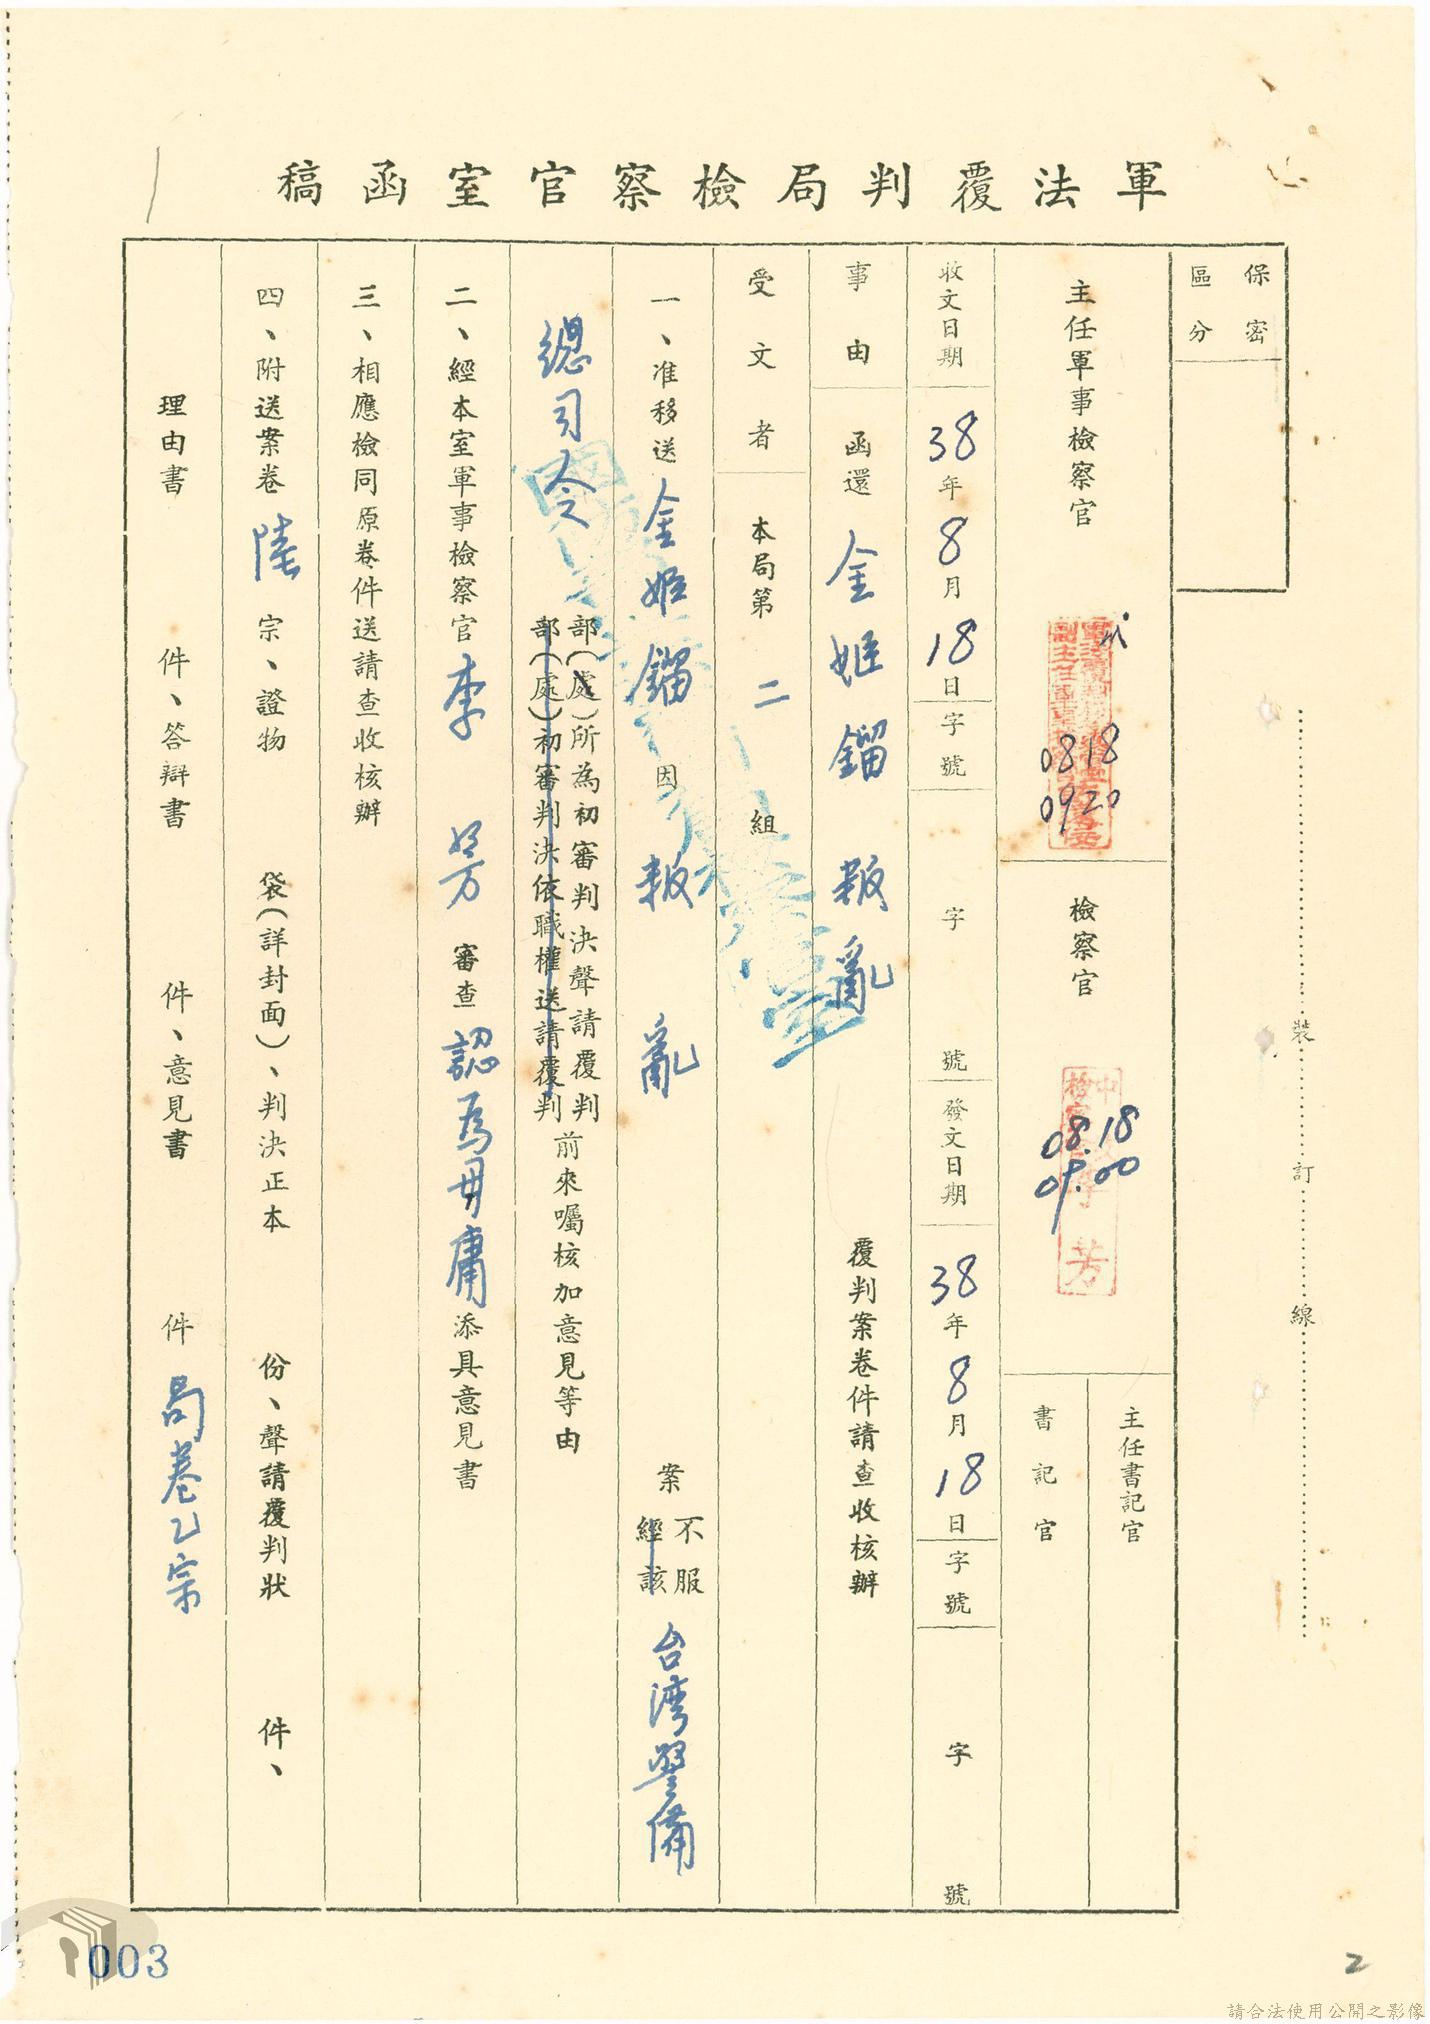 軍法覆判局檢察官室函稿
保密
區分
主任軍事檢察官
0818
0920
檢察官
08.18
09.00
李芳
主任書記官
書記官
收文日期 38年8月18日 字號 字 號 發文日期 38年8月18日 字號 字 號
事由 函還金姬鎦叛亂 覆判案卷件請查收核辦
受文者 本局第二組
一、准移送金姬鎦因叛亂案 不服 經該 台灣警備
總司令 部(處)所為初審判決聲請覆判 部(處)初審判決依職權送請覆判 前來囑核加意見等由
二、經本室軍事檢察官李芳審查認為毋庸添具意見書
三、相應檢同原卷件送請查收核辦
四、附送案卷陸宗、證物 袋(詳封面)、判決正本 份、聲請覆判狀 件、
理由書 件、答辯書 件、意見書 件 局卷乙宗
裝 訂 線
003
2
請合法使用公開之影像